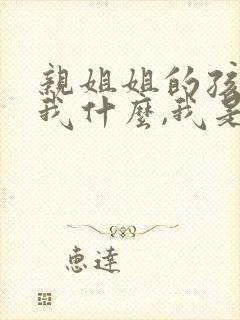 親姐姐的孩
我什麼,我是
惠達